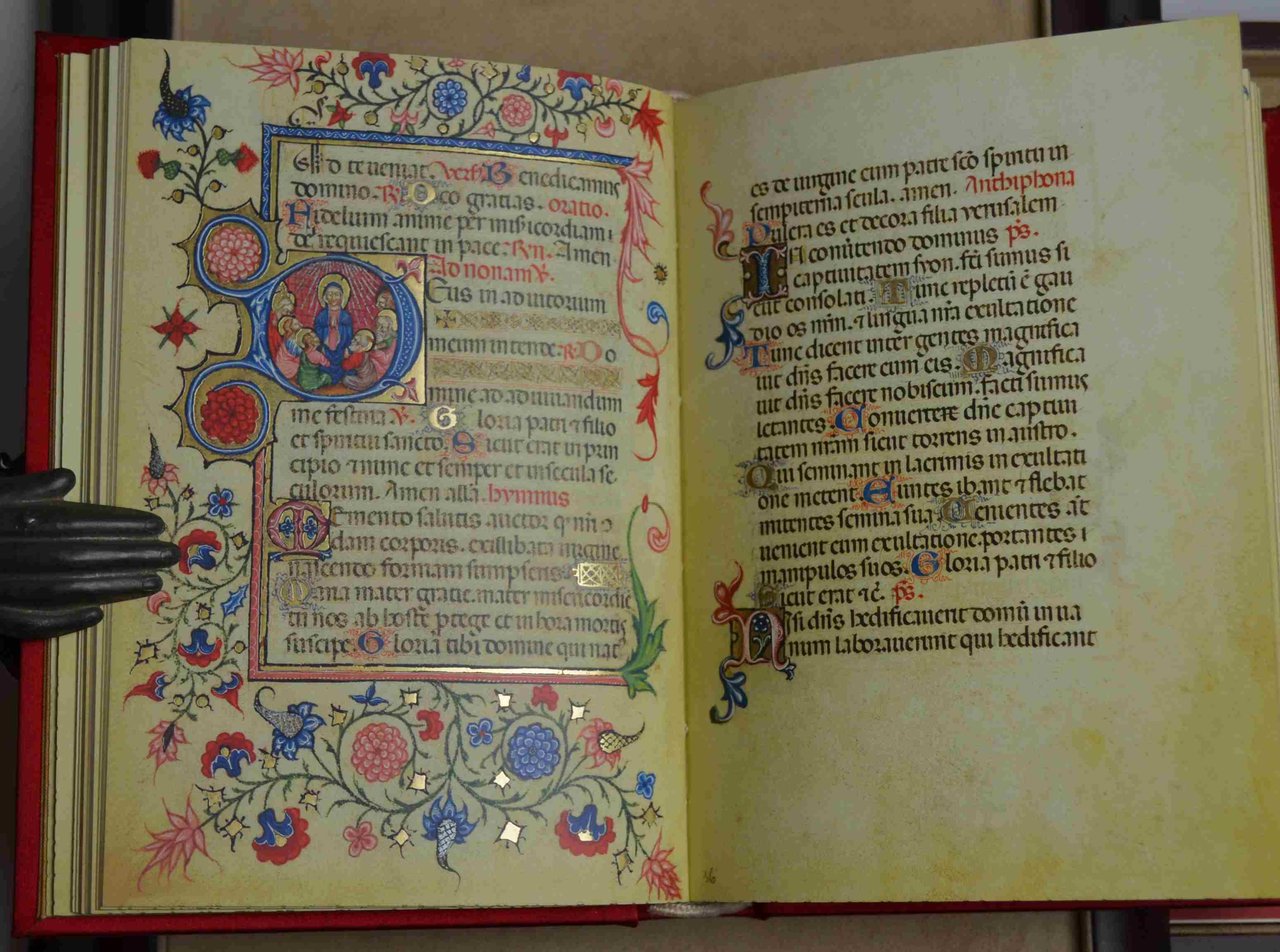 ad te veniat. Vers. Benedicamus
domino. R. Deo gratias. oratio.
Fidelium anime per misericordiam
de requiescant in pace. Rn. Amen
Ad nonam. V.
Deus in adiutorium
meum intende. R. Do
mine ad adiuuandum
me festina. V. Gloria patri et filio
et spiritui sancto. Sicut erat in prin
cipio et nunc et semper et in secula se
culorum. Amen alla. hymnus
Memento salutis auctor
dam corporis. ex illibata uirgine
nascendo formam sumpseris.
Maria mater gratie. mater misericordie
tu nos ab hoste protege et in hora mortis
suscipe. Gloria tibi domine qui nat
es de uirgine cum patre sco spiritu in
sempiterna secula. amen. Anthiphona
Pulcra es et decora filia yerusalem
In conuertendo dominus ps.
captiuitatem syon. fcti sumus si
cut consolati. Tunc repletu e gau
dio os nrm. et lingua nra exultatione
Tunc dicent inter gentes magnifica
uit dns facere cum eis. Magnifica
uit dns facere nobiscum. facti sumus
letantes. Conuertere dne captiui
tatem nram sicut torrens in austro.
Qui seminant in lacrimis in exultati
one metent. Euntes ibant et flebat
mitentes semina sua. Uenientes at
uenient cum exultatione. portantes
manipulos suos. Gloria patri et filio
Sicut erat et c. ps.
Nisi dns hedificauerit domu in ua
num laborauerunt qui hedificant
36